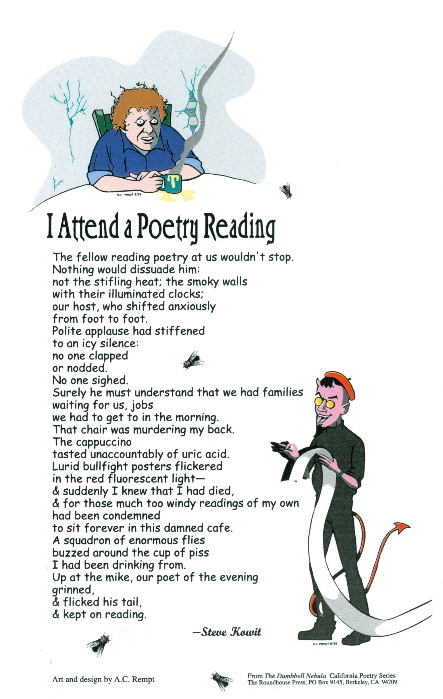 I Attend a Poetry Reading
The fellow reading poetry at us wouldn't stop.
Nothing would dissuade him:
not the stifling heat; the smoky walls
with their illuminated clocks;
our host, who shifted anxiously
from foot to foot.
Polite applause had stiffened
to an icy silence:
no one clapped
or nodded.
No one sighed.
Surely he must understand that we had families
waiting for us, jobs
we had to get to in the morning.
That chair was murdering my back.
The cappuccino
tasted unaccountably of uric acid.
Lurid bullfight posters flickered
in the red fluorescent light—
& suddenly I knew that I had died,
& for those much too windy readings of my own
had been condemned
to sit forever in this damned cafe.
A squadron of enormous flies
buzzed around the cup of piss
I had been drinking from.
Up at the mike, our poet of the evening
grinned,
& flicked his tail,
& kept on reading.
—Steve Kowit
Art and design by A.C. Rempt
From The Dumbbell Nebula California Poetry Series
The Roundhouse Press, PO Box 9145, Berkeley, CA 94709